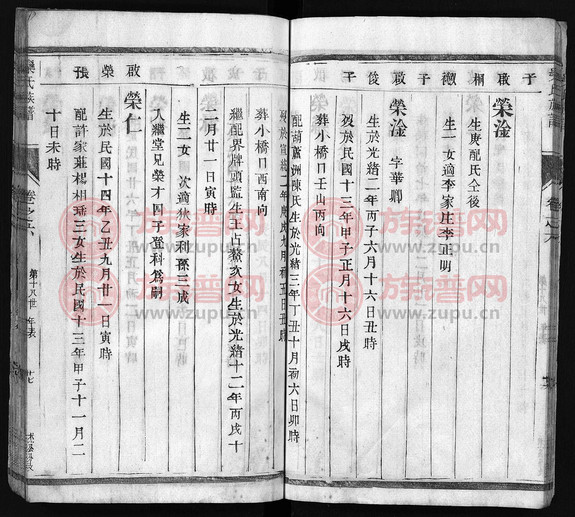 子啟桐
榮淦
生庚配氏仝後
生一女適李家庄李正明
子啟俊
榮淦 字華卿
生於光緒二年丙子六月十六日丑時
歿於民國十三年甲子正月十六日戌時
葬小橋口壬山丙向
配葫蘆洲陳氏生於光緒三年丁丑十月初六日卯時
葬小橋口西南向
繼配界牌頭監生王占鰲次女生於光緒十二年丙戌十
二月廿一日寅時
生二女 次適狄家利孫三成
入繼堂兄榮才四子登科為嗣
榮仁
生於民國十四年乙丑九月廿一日寅時
配許家莊楊相 三女生於民國十三年甲子十一月二
十日未時
氏族譜
卷之六
第十八世 年表
族譜网
www.zupu.cn
族譜网
www.zupu.cn
族譜网
www.zupu.cn
族譜网
www.zupu.cn